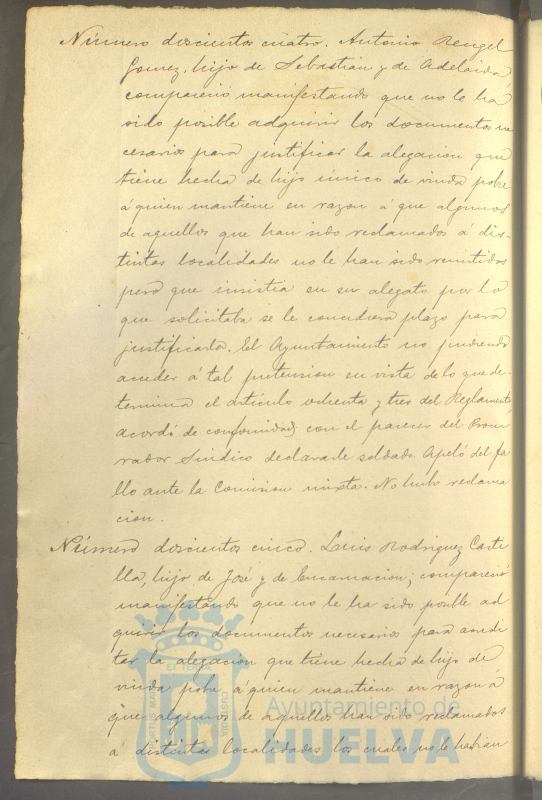 Número doscientos cuatro. Antonio Rengel
Gomez, hijo de Sebastián y de Adelaida,
compareció manifestando que no le ha
sido posible adquirir los documentos ne
cesarios para justificar la alegacion que
tiene hecha de hijo único de viuda pobre
á quien mantiene en razon á que algunos
de aquellos que han sido reclamados á dis-
tintas localidades no le han sido remitidos
pero que insistia en su alegato por lo
que solicitaba se le concediera plazo para
justificarla. El Ayuntamiento no pudiendo
acceder á tal pretension en vista de lo que de-
termina el artículo ochenta y tres del Reglamento
acordó de conformidad con el parecer del Procu
rador Síndico declararle soldado. Apeló del fa
llo ante la Comision mixta. No hubo reclama
cion.
Número doscientos cinco. Luis Rodriguez Casti
lla, hijo de José y de Encarnacion; compareció
manifestando que no le ha sido posible ad
quirir los documentos necesarios para acredi
tar la alegacion que tiene hecha de hijo de
viuda pobre á quien mantiene en razon á
que algunos de aquellos han sido reclamados
á distintas localidades los cuales no le habian
PORTUS MARIS ET TERRAE CUSTODIA
Ayuntamiento de
HUELVA